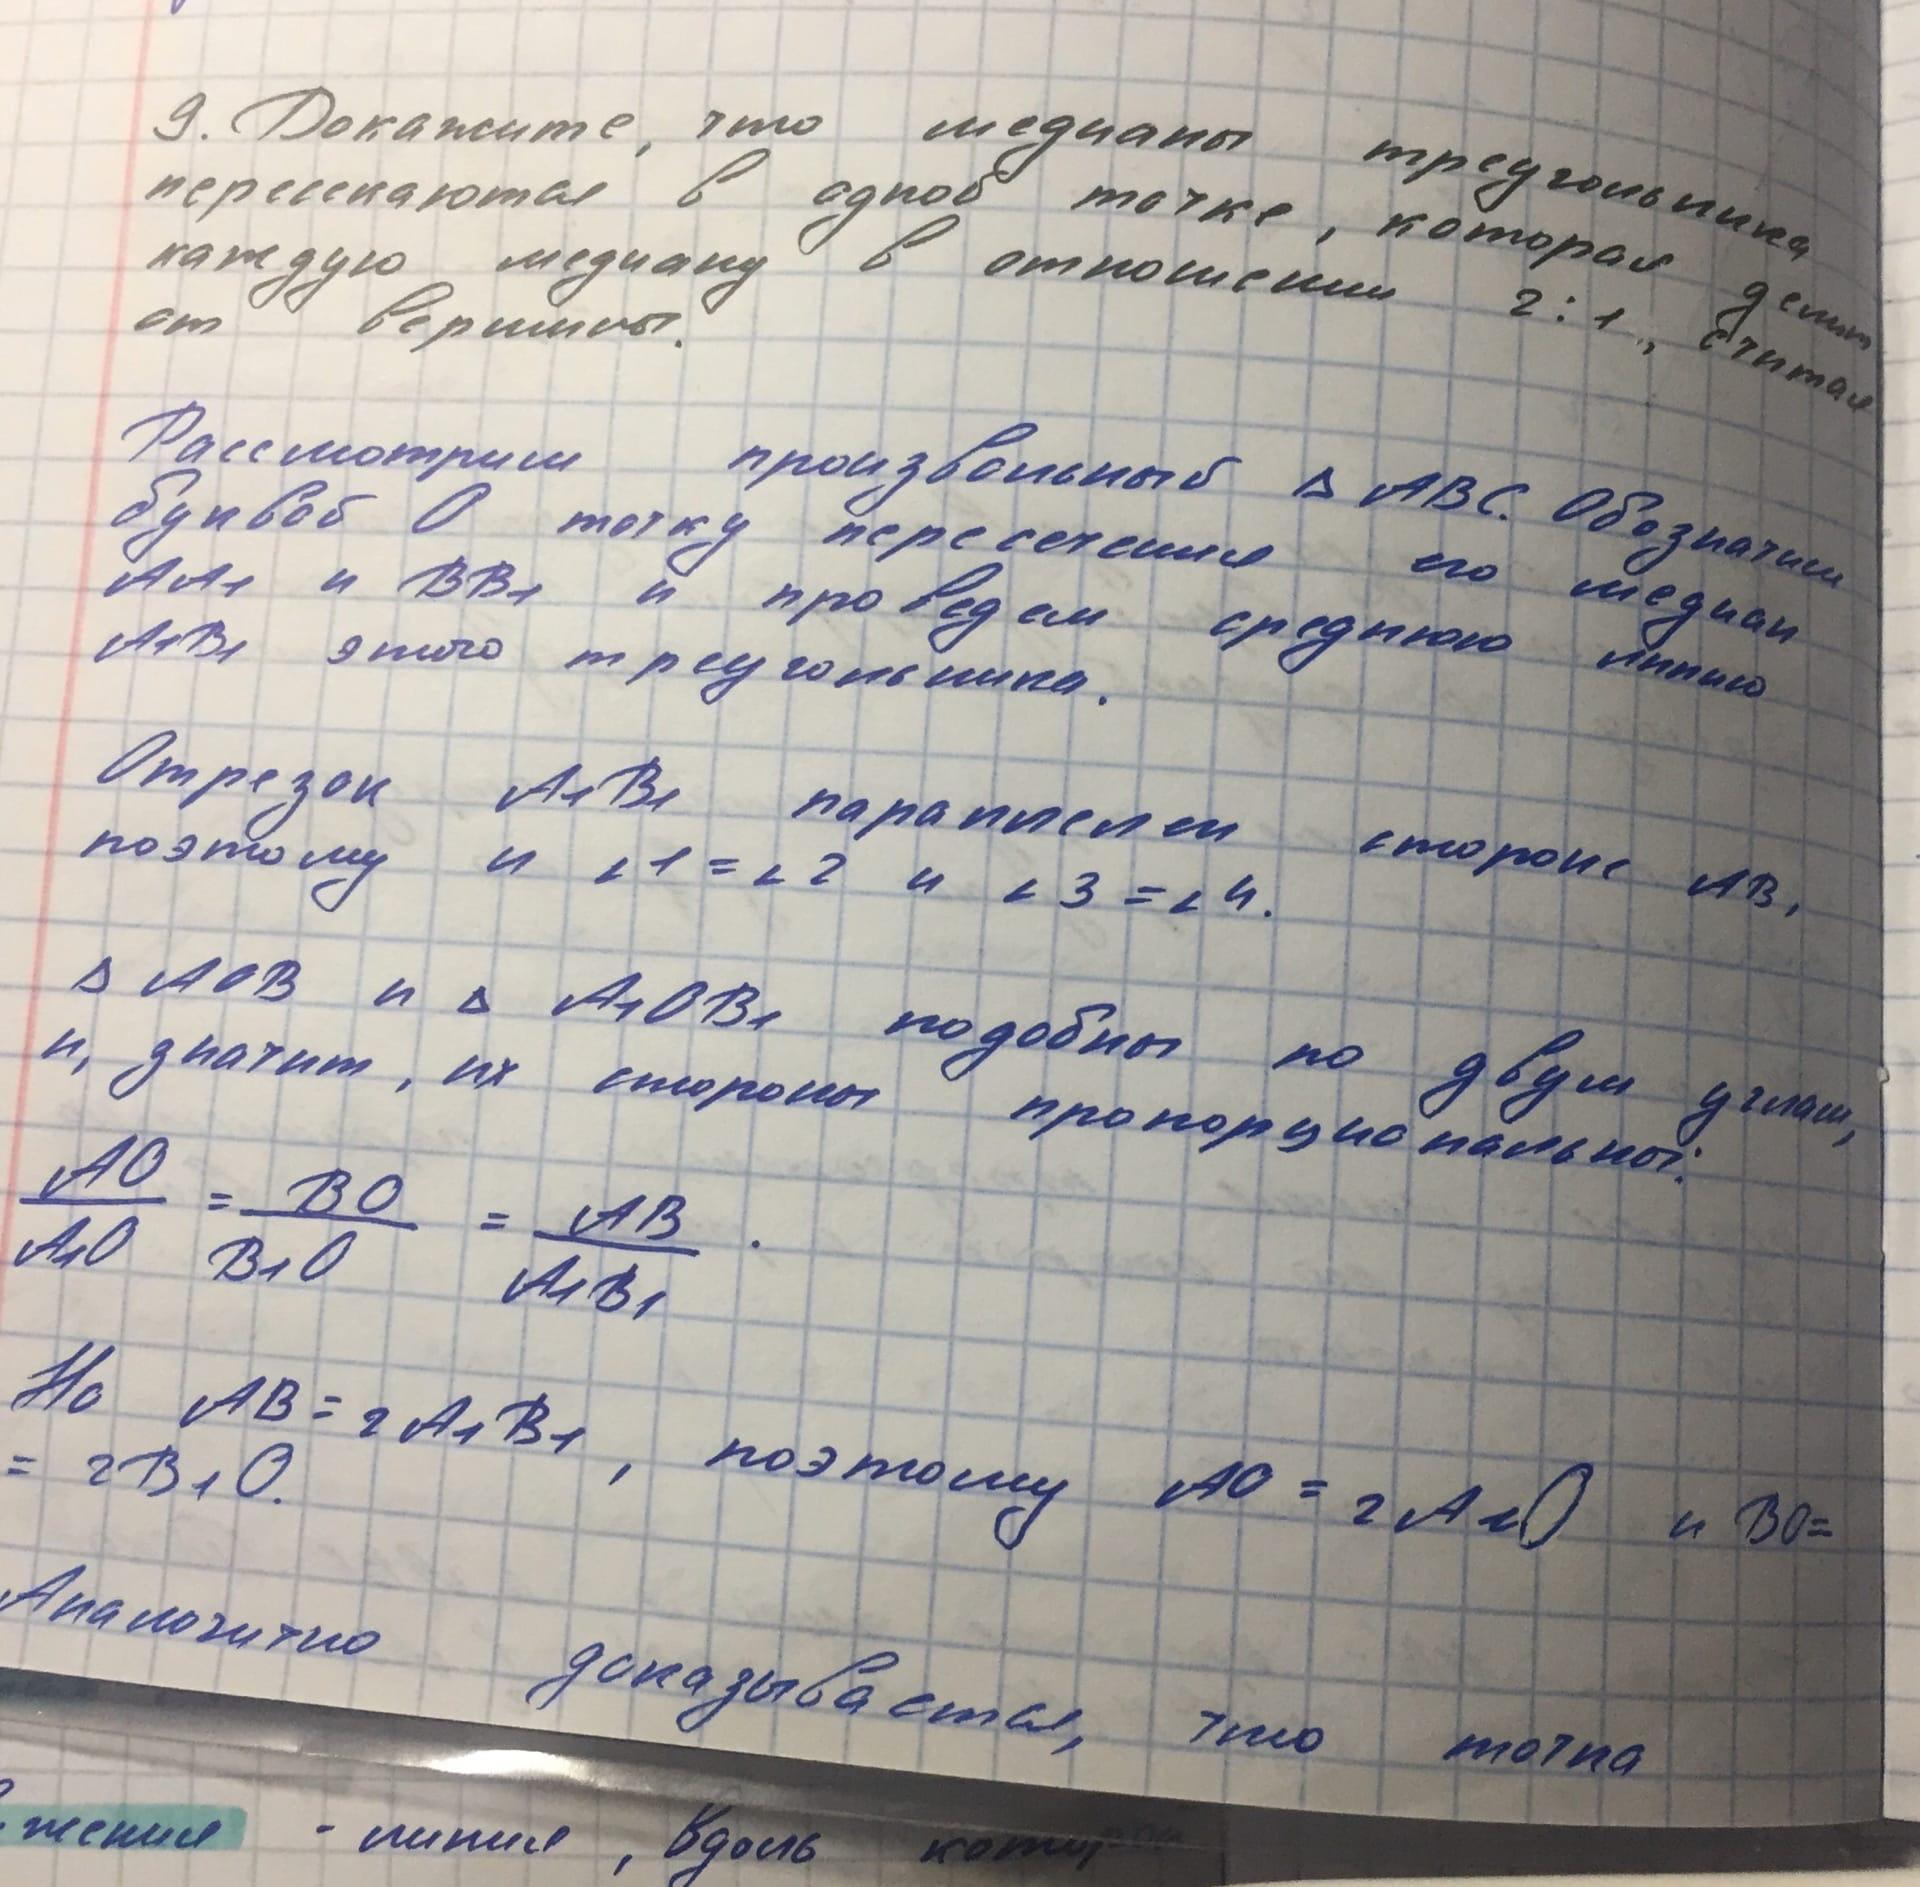 9. Докажите, что медианы треугольника
пересекаются в одной точке, которая делит
каждую медиану в отношении 2:1, считая
от вершины.
Рассмотрим произвольный △ ABC. Обозначим
буквой O точку пересечения его медиан
AA₁ и BB₁ и проведем среднюю линию
A₁B₁ этого треугольника.
Отрезок A₁B₁ параллелен стороне AB,
поэтому и ∠1=∠2 и ∠3=∠4.
△ AOB и △ A₁OB₁ подобны по двум углам,
и, значит, их стороны пропорциональны:
AO/A₁O = BO/B₁O = AB/A₁B₁.
Но AB=2A₁B₁, поэтому AO=2A₁O и BO=
=2B₁O.
Аналогично доказывается, что точка
жения - линия, вдоль